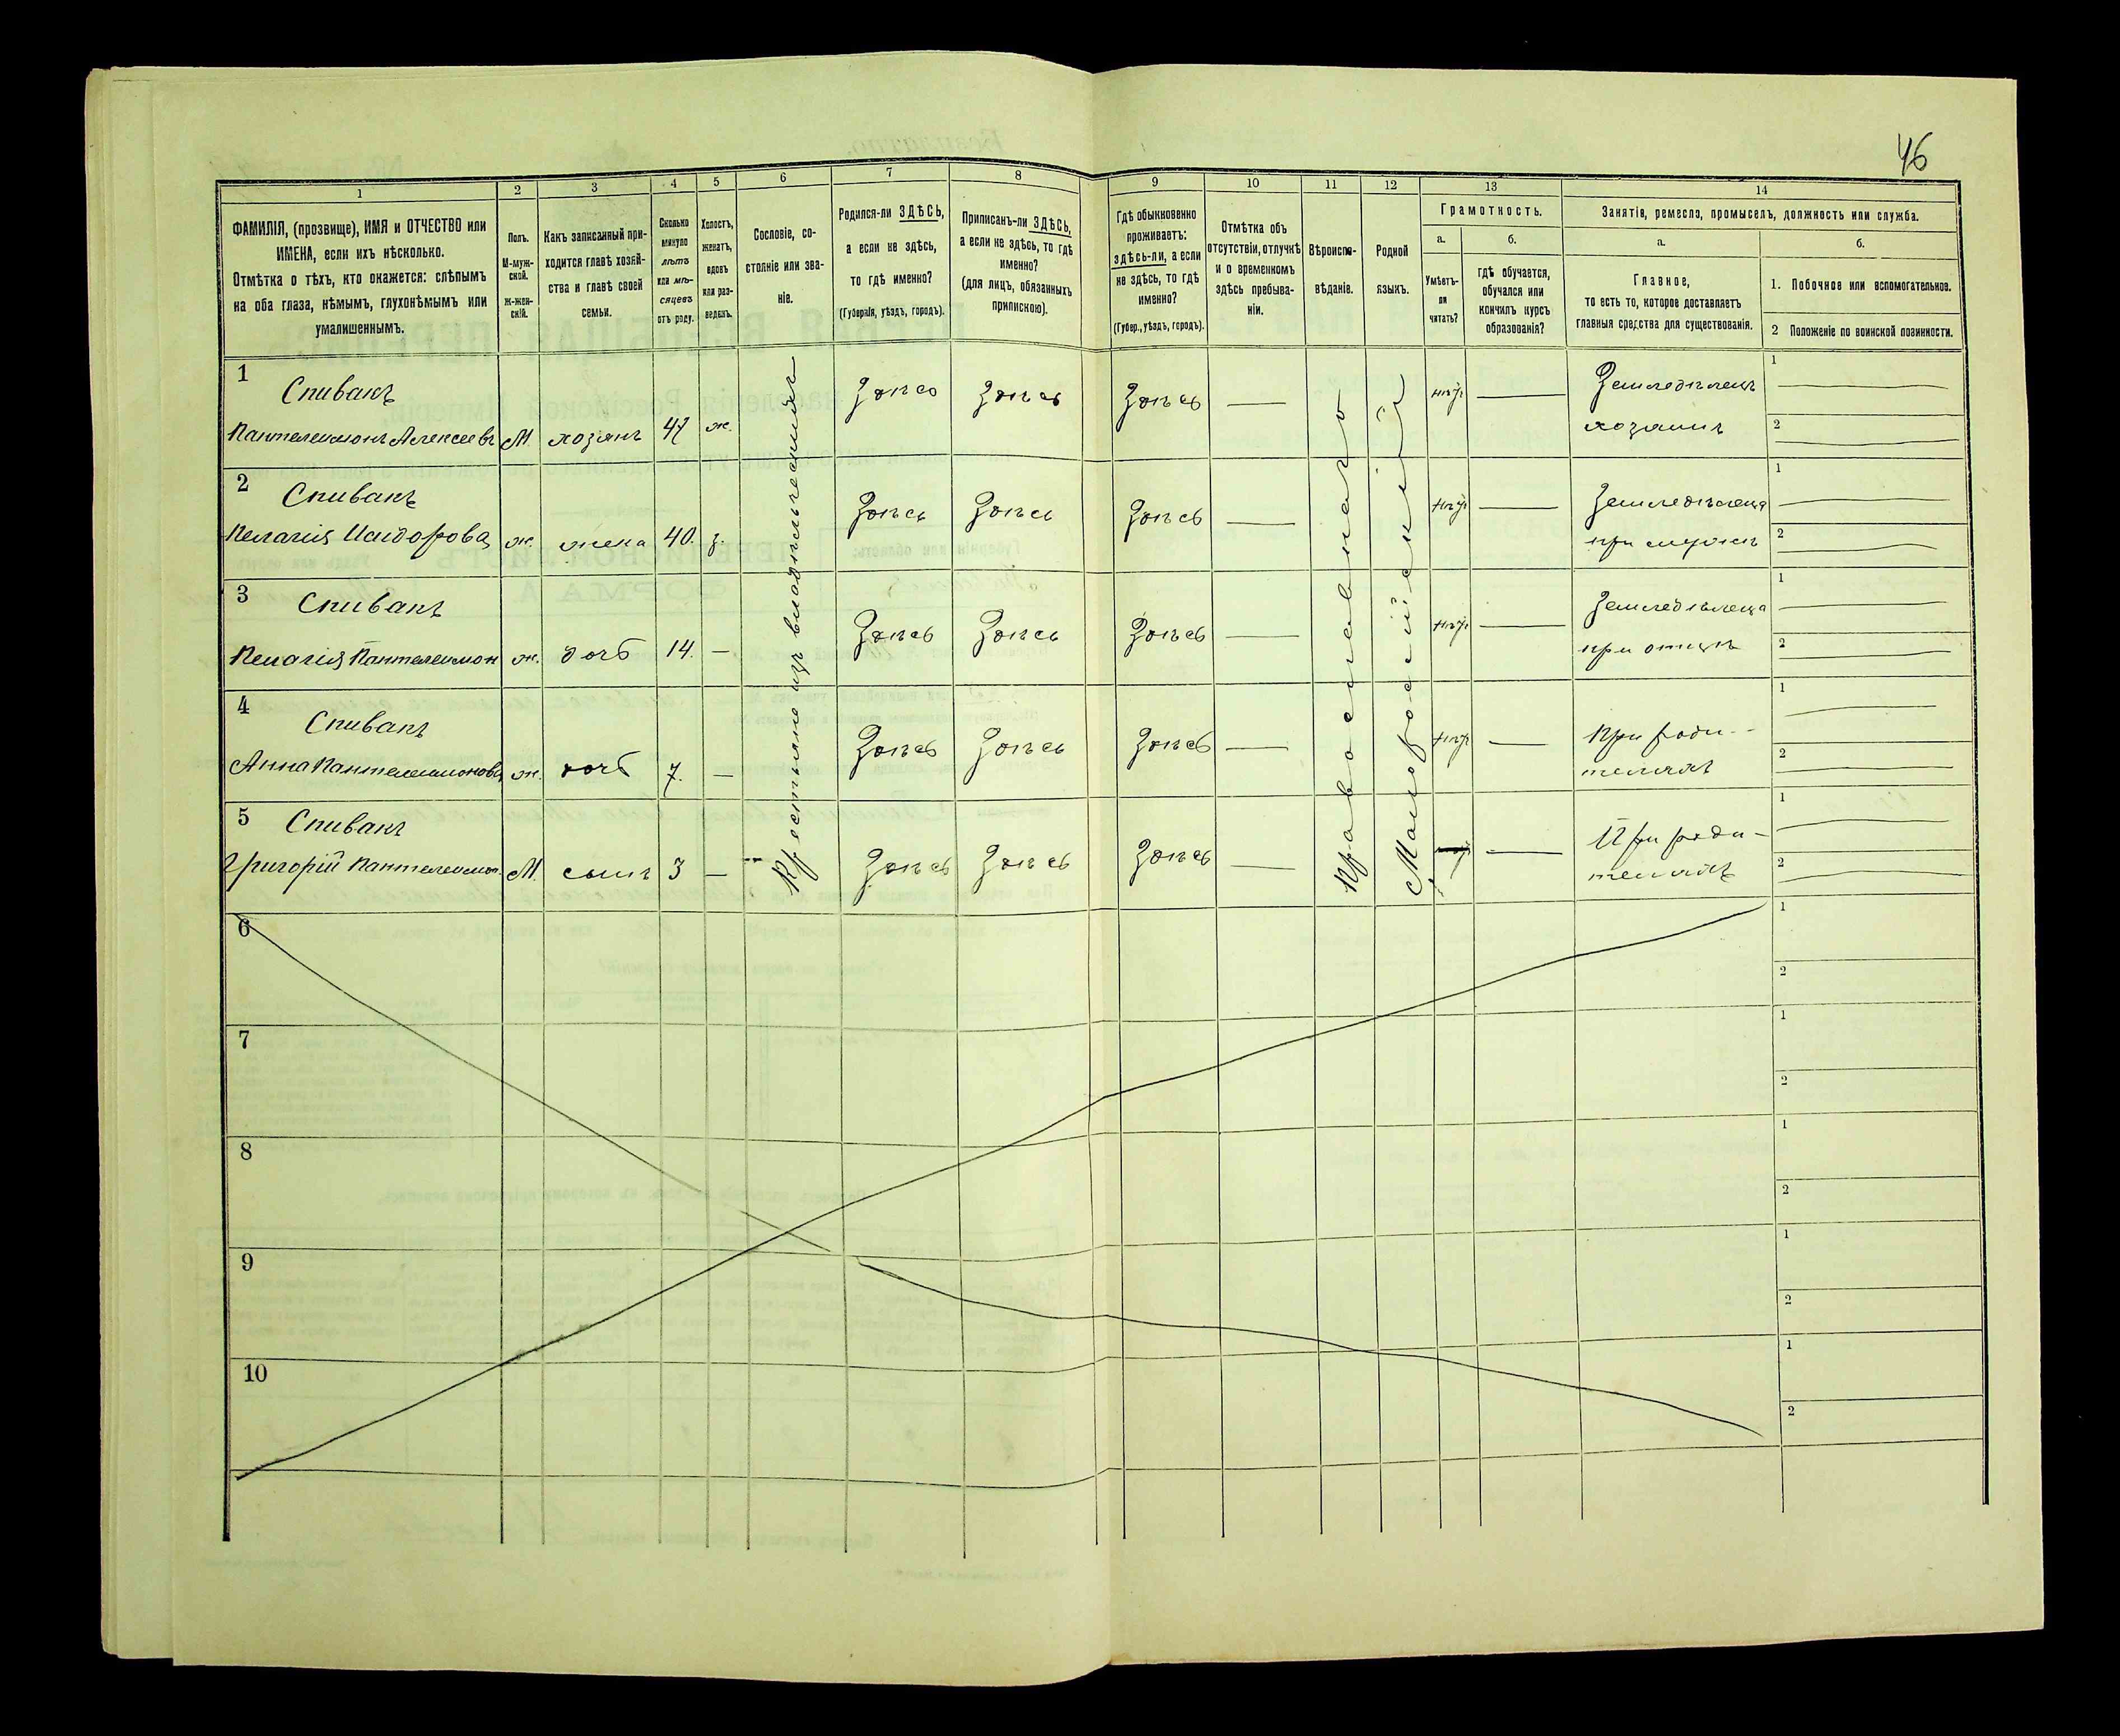 46
1 2 3 4 5 6 7 8 9 10 11 12 13 14
ФАМИЛІЯ, (прозвище), ИМЯ и ОТЧЕСТВО или
ИМЕНА, если ихъ нѣсколько.
Отмѣтка о тѣхъ, кто окажется: слѣпымъ
на оба глаза, нѣмымъ, глухонѣмымъ или
умалишеннымъ.
Полъ.
М-муж-
ской.
ж-жен-
скій.
Какъ записанный при-
ходится главѣ хозяй-
ства и главѣ своей
семьи.
Сколько
минуло
лѣтъ
или мѣ-
сяцевъ
отъ роду.
Холостъ,
женатъ,
вдовъ
или раз-
веденъ.
Сословіе, со-
стояніе или зва-
ніе.
Родился-ли ЗДѢСЬ,
а если не здѣсь,
то гдѣ именно?
(Губернія, уѣздъ, городъ).
Приписанъ-ли ЗДѢСЬ,
а если не здѣсь, то гдѣ
именно?
(для лицъ, обязанныхъ
припискою).
Гдѣ обыкновенно
проживаетъ:
здѣсь-ли, а если
не здѣсь, то гдѣ
именно?
(Губер., уѣздъ, городъ).
Отмѣтка объ
отсутствіи, отлучкѣ
и о временномъ
здѣсь пребыва-
ніи.
Вѣроиспо-
вѣданіе.
Родной
языкъ.
Грамотность.
а.
Умѣетъ-
ли
читать?
б.
гдѣ обучается,
обучался или
кончилъ курсъ
образованія?
Занятіе, ремесло, промыселъ, должность или служба.
а.
Главное,
то есть то, которое доставляетъ
главныя средства для существованія.
б.
1. Побочное или вспомогательное.
2 Положеніе по воинской повинности.
Крестьяне изъ владѣльческихъ
Православнаго
Малороссійскій
1 Спивакъ Здѣсь Здѣсь Здѣсь — нѣтъ — Земледѣлецъ 1
Пантелеимонъ Алексѣевъ М. хозяинъ 47 ж. хозяинъ 2
2 Спивакъ Здѣсь Здѣсь Здѣсь — нѣтъ — Земледѣлица 1
Пелагія Исидорова ж. жена 40. з. при мужѣ 2
3 Спивакъ Здѣсь Здѣсь Здѣсь — нѣтъ — Земледѣлица 1
Пелагія Пантелеимон ж. дочь 14. — при отцѣ 2
4 Спивакъ Здѣсь Здѣсь Здѣсь — нѣтъ — При роди- 1
Анна Пантелеимонова ж. дочь 7. — теляхъ 2
5 Спивакъ Здѣсь Здѣсь Здѣсь — — При роди- 1
Григорій Пантелеимон. М. сынъ 3 — теляхъ 2
6 1
2
7 1
2
8 1
2
9 1
2
10 1
2